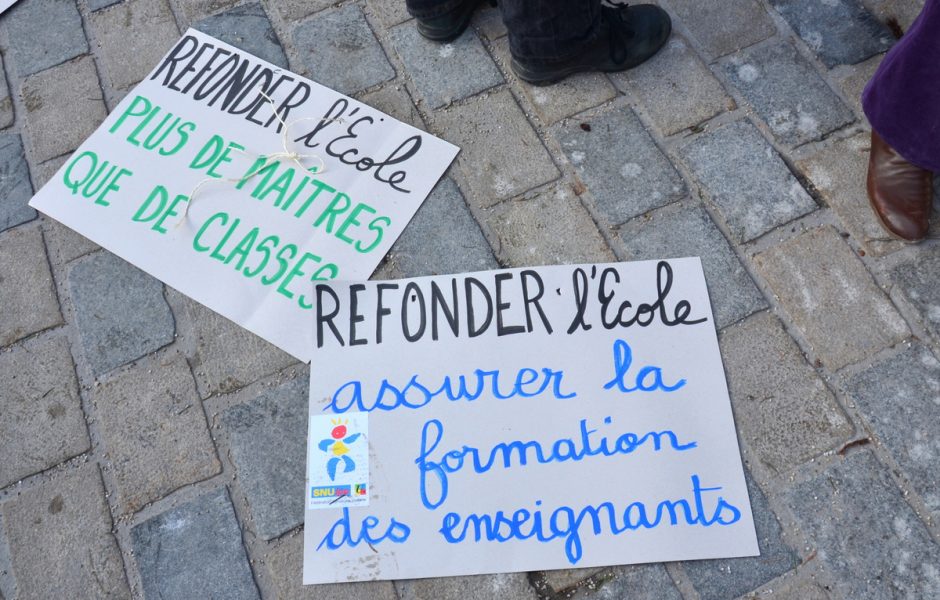 REFONDER l'École
PLUS DE MAÎTRES
QUE DE CLASSES
REFONDER l'École
assurer la
formation
des enseignants
SNU